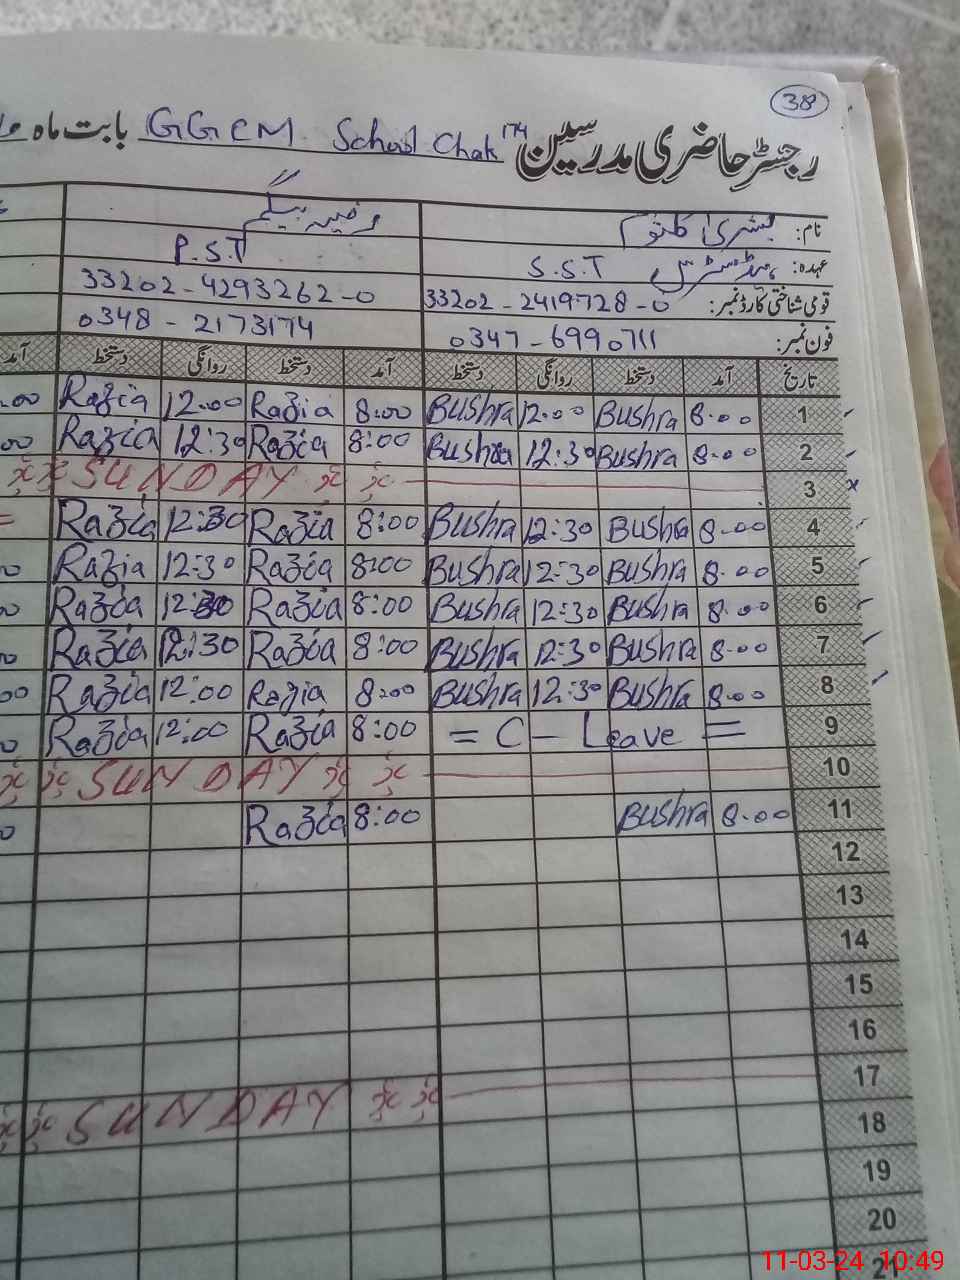 38
رجسٹر حاضری مدرسین GGCM School Chak 174 بابت ماہ
نام: بشریٰ کلثوم رضیہ بیگم
عہدہ: ہیڈمسٹرس S.S.T P.S.T
قومی شناختی کارڈ نمبر: 33202-2419728-0 33202-4293262-0
فون نمبر: 0347-6990711 0348-2173174
تاریخ آمد دستخط روانگی دستخط آمد دستخط روانگی دستخط آمد
1 8.00 Bushra 12.00 Bushra 8:00 Razia 12.00 Razia
2 8.00 Bushra 12:30 Bushra 8:00 Razia 12:30 Razia
3 SUNDAY
4 8.00 Bushra 12:30 Bushra 8:00 Razia 12:30 Razia
5 8.00 Bushra 12:30 Bushra 8:00 Razia 12:30 Razia
6 8.00 Bushra 12:30 Bushra 8:00 Razia 12:30 Razia
7 8.00 Bushra 12:30 Bushra 8:00 Razia 12:30 Razia
8 8.00 Bushra 12:30 Bushra 8:00 Razia 12:00 Razia
9 = C - Leave = 8:00 Razia 12:00 Razia
10 SUNDAY
11 8.00 Bushra 8:00 Razia
12
13
14
15
16
17 SUNDAY
18
19
20
21
11-03-24 10:49